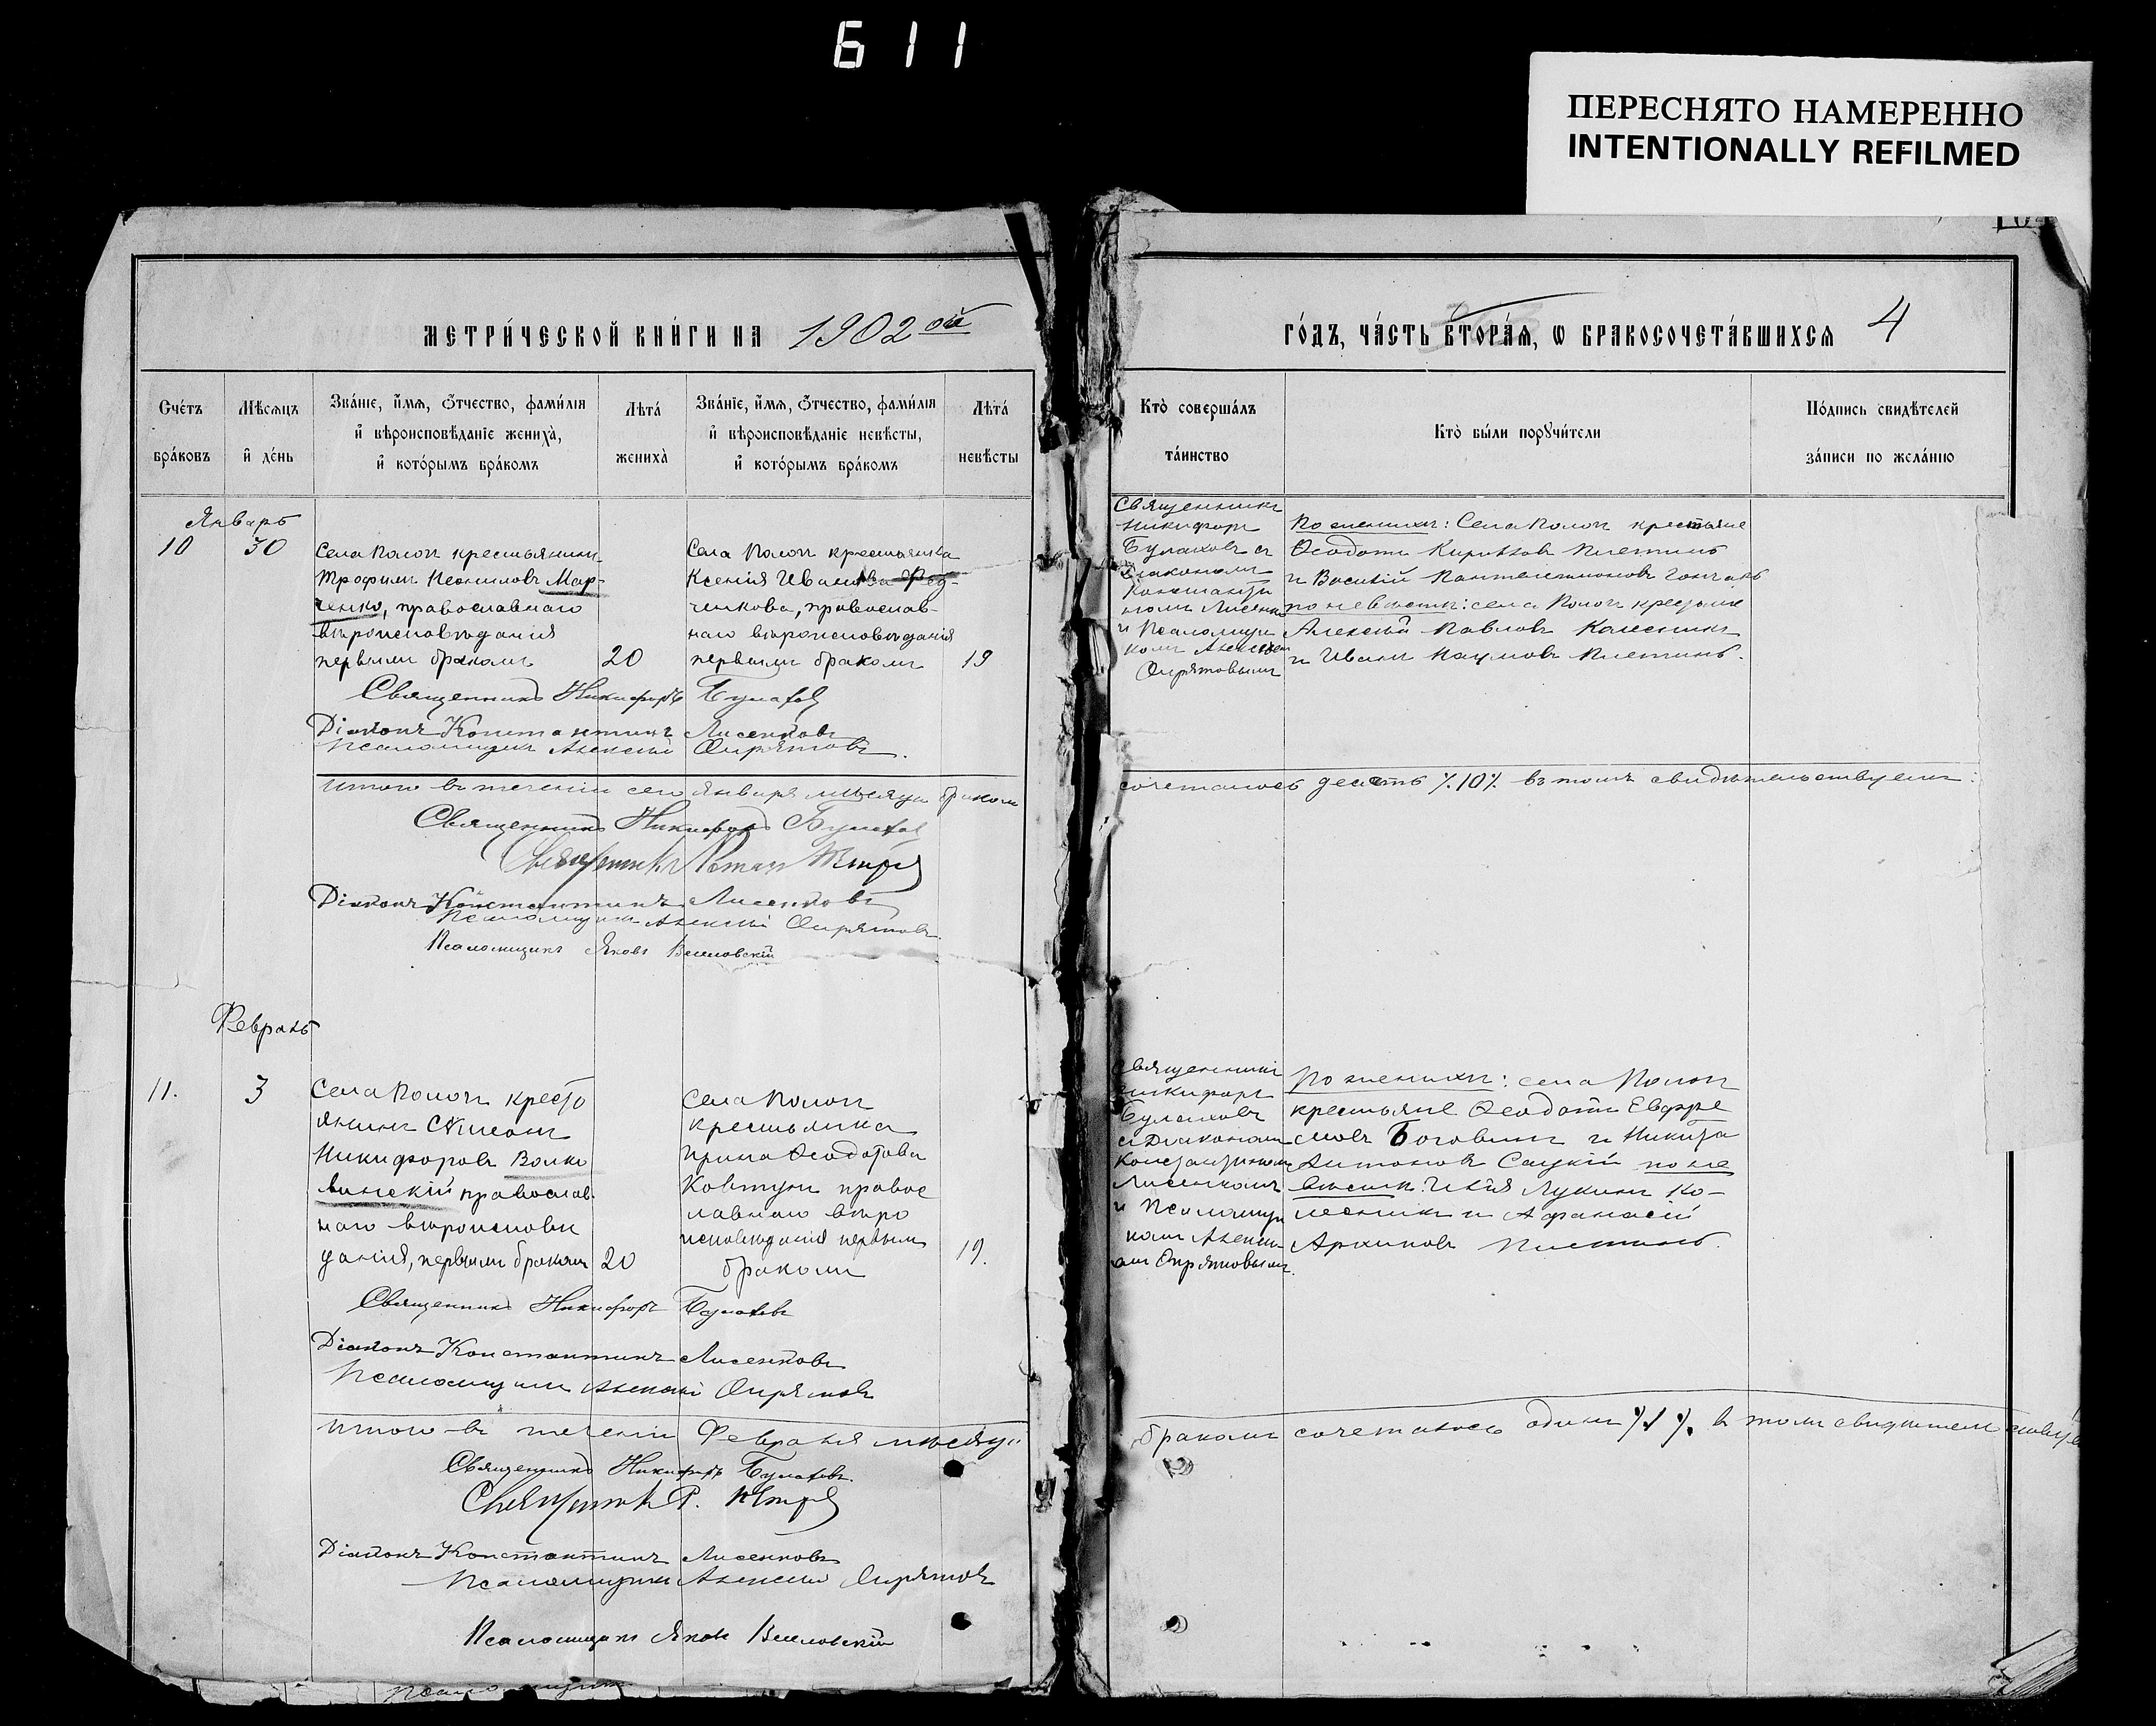 611
ПЕРЕСНЯТО НАМЕРЕННО
INTENTIONALLY REFILMED
МЕТРИ́ЧЕСКОЙ КНИ́ГИ НА 1902 ой
ГО́ДЪ, ЧА́СТЬ ВТОРА́Я, Ѡ БРАКОСОЧЕТА́ВШИХСЯ 4
Сче́тъ бра́ковъ
Мѣ́сяцъ и҆ де́нь
Зва́ніе, и҆́мя, ѻ҆́тчество, фами́лія
и҆ вѣроисповѣ́даніе жениха̀,
и҆ кото́рымъ бра́комъ
Лѣта́ жениха̀
Зва́ніе, и҆́мя, ѻ҆́тчество, фами́лія
и҆ вѣроисповѣ́даніе невѣ́сты,
и҆ кото́рымъ бра́комъ
Лѣта́ невѣ́сты
Кто̀ соверша́лъ
та́инство
Кто̀ бы́ли порꙋчи́тели
По́дпись свидѣ́телей
за́писи по жела́нію
Январь
10
30
Села Полог крестьянинъ
Трофимъ Неониловъ Мар-
ченко, православнаго
вѣроисповѣданія
первымъ бракомъ
20
Села Полог крестьянка
Ксенія Иванова Фед-
ченкова, православ-
наго вѣроисповѣданія
первымъ бракомъ
19
Священникъ
Никифоръ
Булаховъ съ
Діакономъ
Константи
номъ Лисенко
и Псаломщи
комъ Алексѣем
Опрятовымъ
По женихѣ: Села Полог крестьяне
Ѳеодотъ Кирилловъ Плетинь
и Василій Пантелеимоновъ Гончаръ
по невѣстѣ: села Полог крестьяне
Алексѣй Павловъ Колесникъ
и Иванъ Наумовъ Плетинь.
Священникъ Никифоръ Булахов
Діаконъ Константинъ Лисенковъ
Псаломщикъ Алексѣй Опрятовъ.
Итого въ теченіи сего Января мѣсяца бракомъ
сочеталось десять ٪10٪ въ томъ свидѣтельствуемъ:
Священникъ Никифоръ Булахов
Священникъ Роман Петров
Діаконъ Константинъ Лисенковъ
Псаломщикъ Алексѣй Опрятовъ
Псаломщикъ Яковъ Веселовскій
Февраль
11.
3
Села Полог кресть
янинъ Симеонъ
Никифоровъ Волко
винскій православ
наго вѣроисповѣ
данія, первымъ бракомъ
20
Села Полог
крестьянка
Ирина Ѳеодотова
Ковтун правос
лавнаго вѣро
исповѣданія первым
бракомъ
19.
Священникъ
Никифоръ
Булаховъ
съ Діакономъ
Константиномъ
Лисенкомъ
и Псаломщи
комъ Алексѣ-
емъ Опрятовымъ.
По женихѣ: села Полог
крестьяне Ѳеодотъ Евфре
мовъ Боговинъ и Никита
Антоновъ Сацкій по не
вѣстѣ: Илія Лукинъ Ко-
лесникъ и Афанасій
Архиповъ Плетинь.
Священникъ Никифоръ Булаховъ
Діаконъ Константинъ Лисенковъ
Псаломщикъ Алексѣй Опрятовъ
Итого въ теченіи Февраля мѣсяца
бракомъ сочеталось одинъ ٪1٪. въ томъ свидѣтельствуем
Священникъ Никифоръ Булаховъ.
Священник Р. Петров
Діаконъ Константинъ Лисенковъ
Псаломщикъ Алексѣй Опрятовъ
Псаломщикъ Яковъ Веселовскій
Псаломщикъ